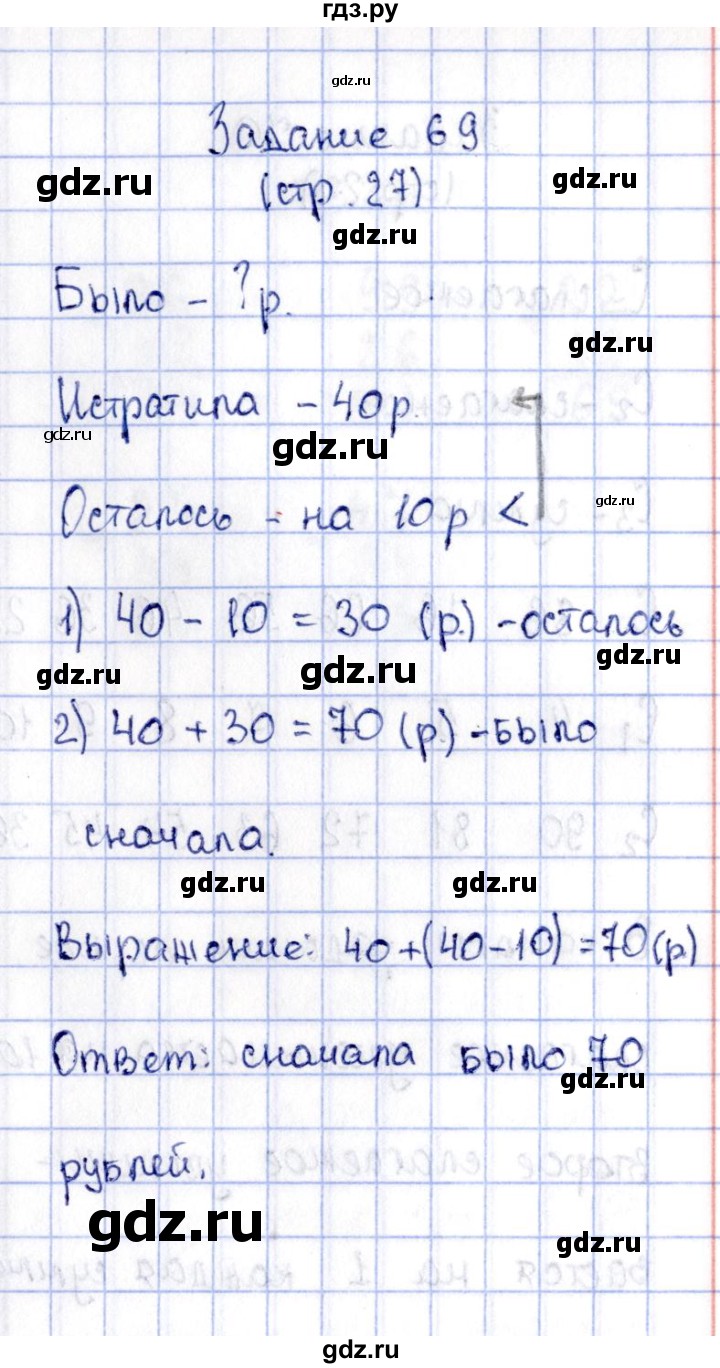 гдз.ру
gdz.ru
Задание 69
gdz.ru
gdz.ru
(стр. 27)
gdz.ru
Было - ? р.
gdz.ru
Истратила - 40 р.
gdz.ru
gdz.ru
Осталось - на 10 р <
gdz.ru
1) 40 - 10 = 30 (р.) - осталось
gdz.ru
gdz.ru
gdz.ru
2) 40 + 30 = 70 (р.) - было
сначала.
gdz.ru
gdz.ru
Выражение: 40+(40-10)=70(р.)
Ответ: сначала было 70
gdz.ru
рублей.
gdz.ru
gdz.ru
gdz.ru